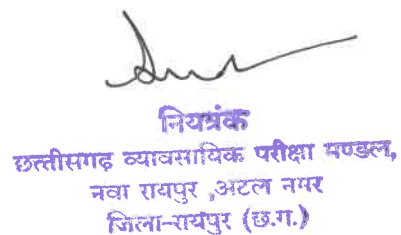 नियंत्रक
छत्तीसगढ़ व्यावसायिक परीक्षा मण्डल,
नवा रायपुर ,अटल नगर
जिला-रायपुर (छ.ग.)